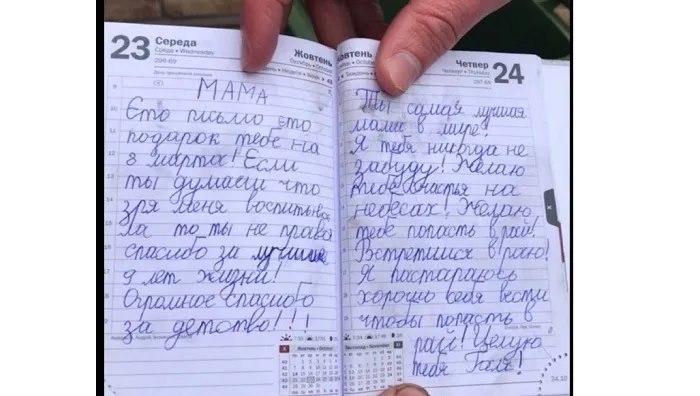 23 Середа
Среда • Wednesday
296-69
Жовтень
Октябрь • October
МАМА
Єто письмо ето
подарок тебе на
8 марта! Если
ты думаеш что
зря меня воспитыва
ла то ты не права
спасибо за лучшие
9 лет жизни!
Огромное спасибо
за детство!!!
Жовтень
Октябрь • October
Четвер
Четверг • Thursday
24
297-68
Ты самая лучшая
мама в мире!
Я тебя никогда не
забуду! Желаю
тебе счастья на
небесах! Желаю
тебе попасть в рай!
Встретимся в раю!
Я пастараюсь
хорошо себя вести
чтобы попасть в
рай! Целую
тебя Галя!
24.10